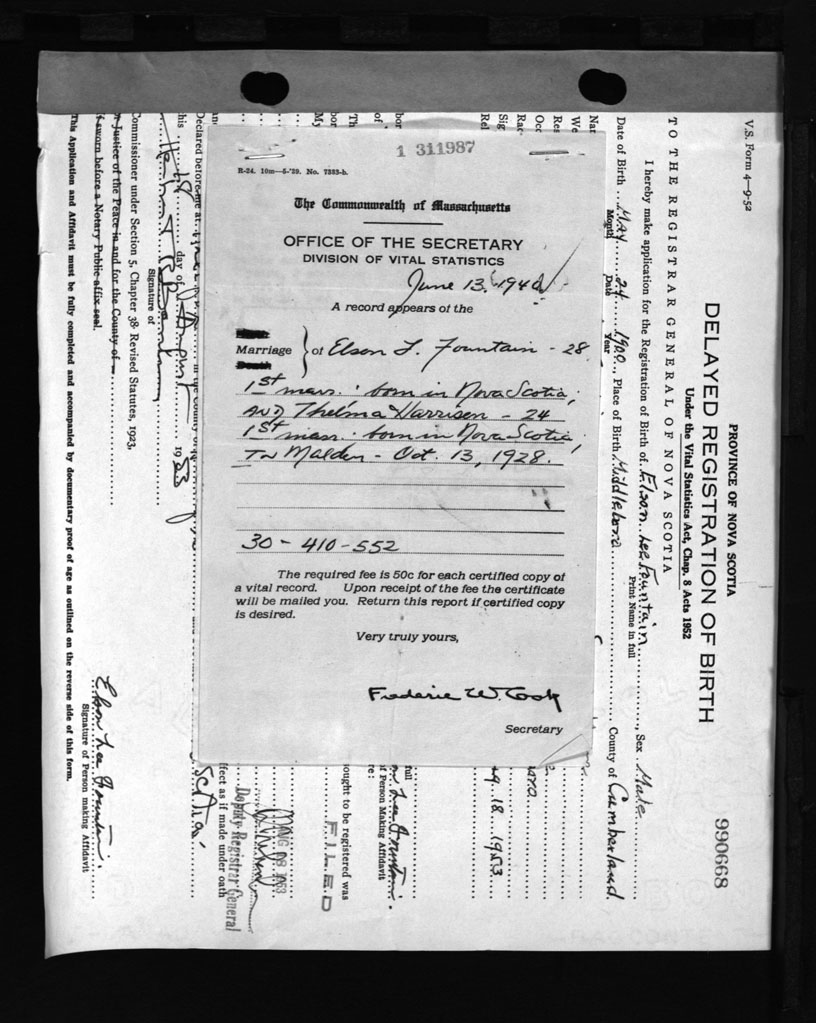 1 311987
R-24. 10m-5-'29. No. 7383-b.
The Commonwealth of Massachusetts
OFFICE OF THE SECRETARY
DIVISION OF VITAL STATISTICS
June 13, 1940
A record appears of the
Marriage } of Elson L. Fountain - 28
Death
1st marr. : born in Nova Scotia;
AND Thelma Harrison - 24
1st marr. : born in Nova Scotia;
IN Malden - Oct. 13, 1928.
30 - 410 - 552
The required fee is 50c for each certified copy of
a vital record. Upon receipt of the fee the certificate
will be mailed you. Return this report if certified copy
is desired.
Very truly yours,
Frederic W. Cook
Secretary
V.S. Form 4-9-52
990668
PROVINCE OF NOVA SCOTIA
DELAYED REGISTRATION OF BIRTH
Under the Vital Statistics Act, Chap. 8 Acts 1952
TO THE REGISTRAR GENERAL OF NOVA SCOTIA
I hereby make application for the Registration of Birth of Elson Lee Fountain, Sex Male
Print Name in full
Date of Birth May 24 1900, Place of Birth County of Cumberland
Month Date Year
Nat
We
Rac
Occ
Res
Sig
Rel
18 1953
full
Lee Fountain
of Person Making Affidavit
re:
bor
of
Th
My
ought to be registered was
FILED
AUG 26 1953
Deputy Registrar General
and
effect as if made under oath
Declared before me at in the County of
Scotia
this 18 day of August 1953
Signature of
Commissioner under Section 5, Chapter 38 Revised Statutes, 1923,
or Justice of the Peace in and for the County of
if sworn before a Notary Public affix seal.
Elson Lee Fountain
Signature of Person making Affidavit
This Application and Affidavit must be fully completed and accompanied by documentary proof of age as outlined on the reverse side of this form.